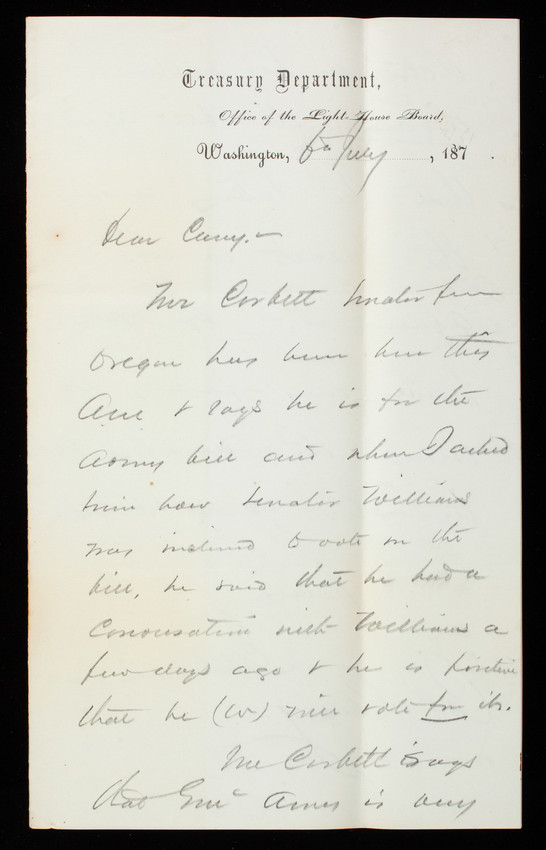 Treasury Department,
Office of the Light-House Board,
Washington, 6th July, 187 .
Dear Casey.-
Mr Corbett Senator from
Oregon has been here this
A.M. & says he is for the
Army bill and when I asked
him how Senator Williams
was inclined to vote on the
bill, he said that he had a
conversation with Williams a
few days ago & he is positive
that he (W) will vote for it.
Mr Corbett says
that Genl Ames is very